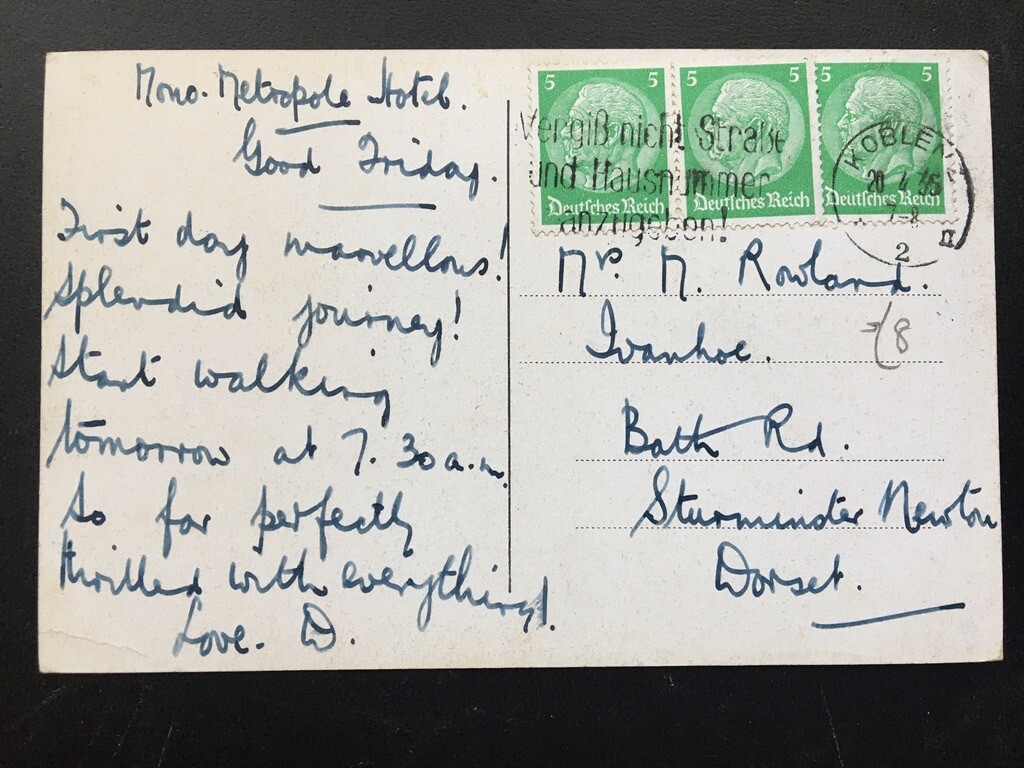 Mono-Metropole Hotel.
Good Friday.
First day marvellous!
Splendid journey!
Start walking
tomorrow at 7.30 a.m.
So far perfectly
thrilled with everything!
Love. D.
5 5 5
Deutsches Reich Deutsches Reich Deutsches Reich
Vergiß nicht Straße
und Hausnummer
anzugeben!
KOBLENZ
20 4 35
7-8
2 II
Mrs. M. Rowland.
Ivanhoe.
Bath Rd.
Sturminster Newton
Dorset.